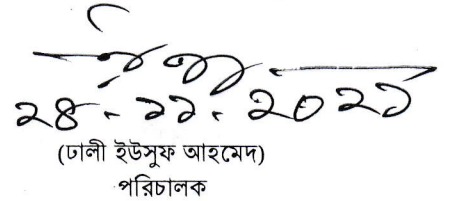 ২৪.১১.২০২১
(ঢালী ইউসুফ আহমেদ)
পরিচালক